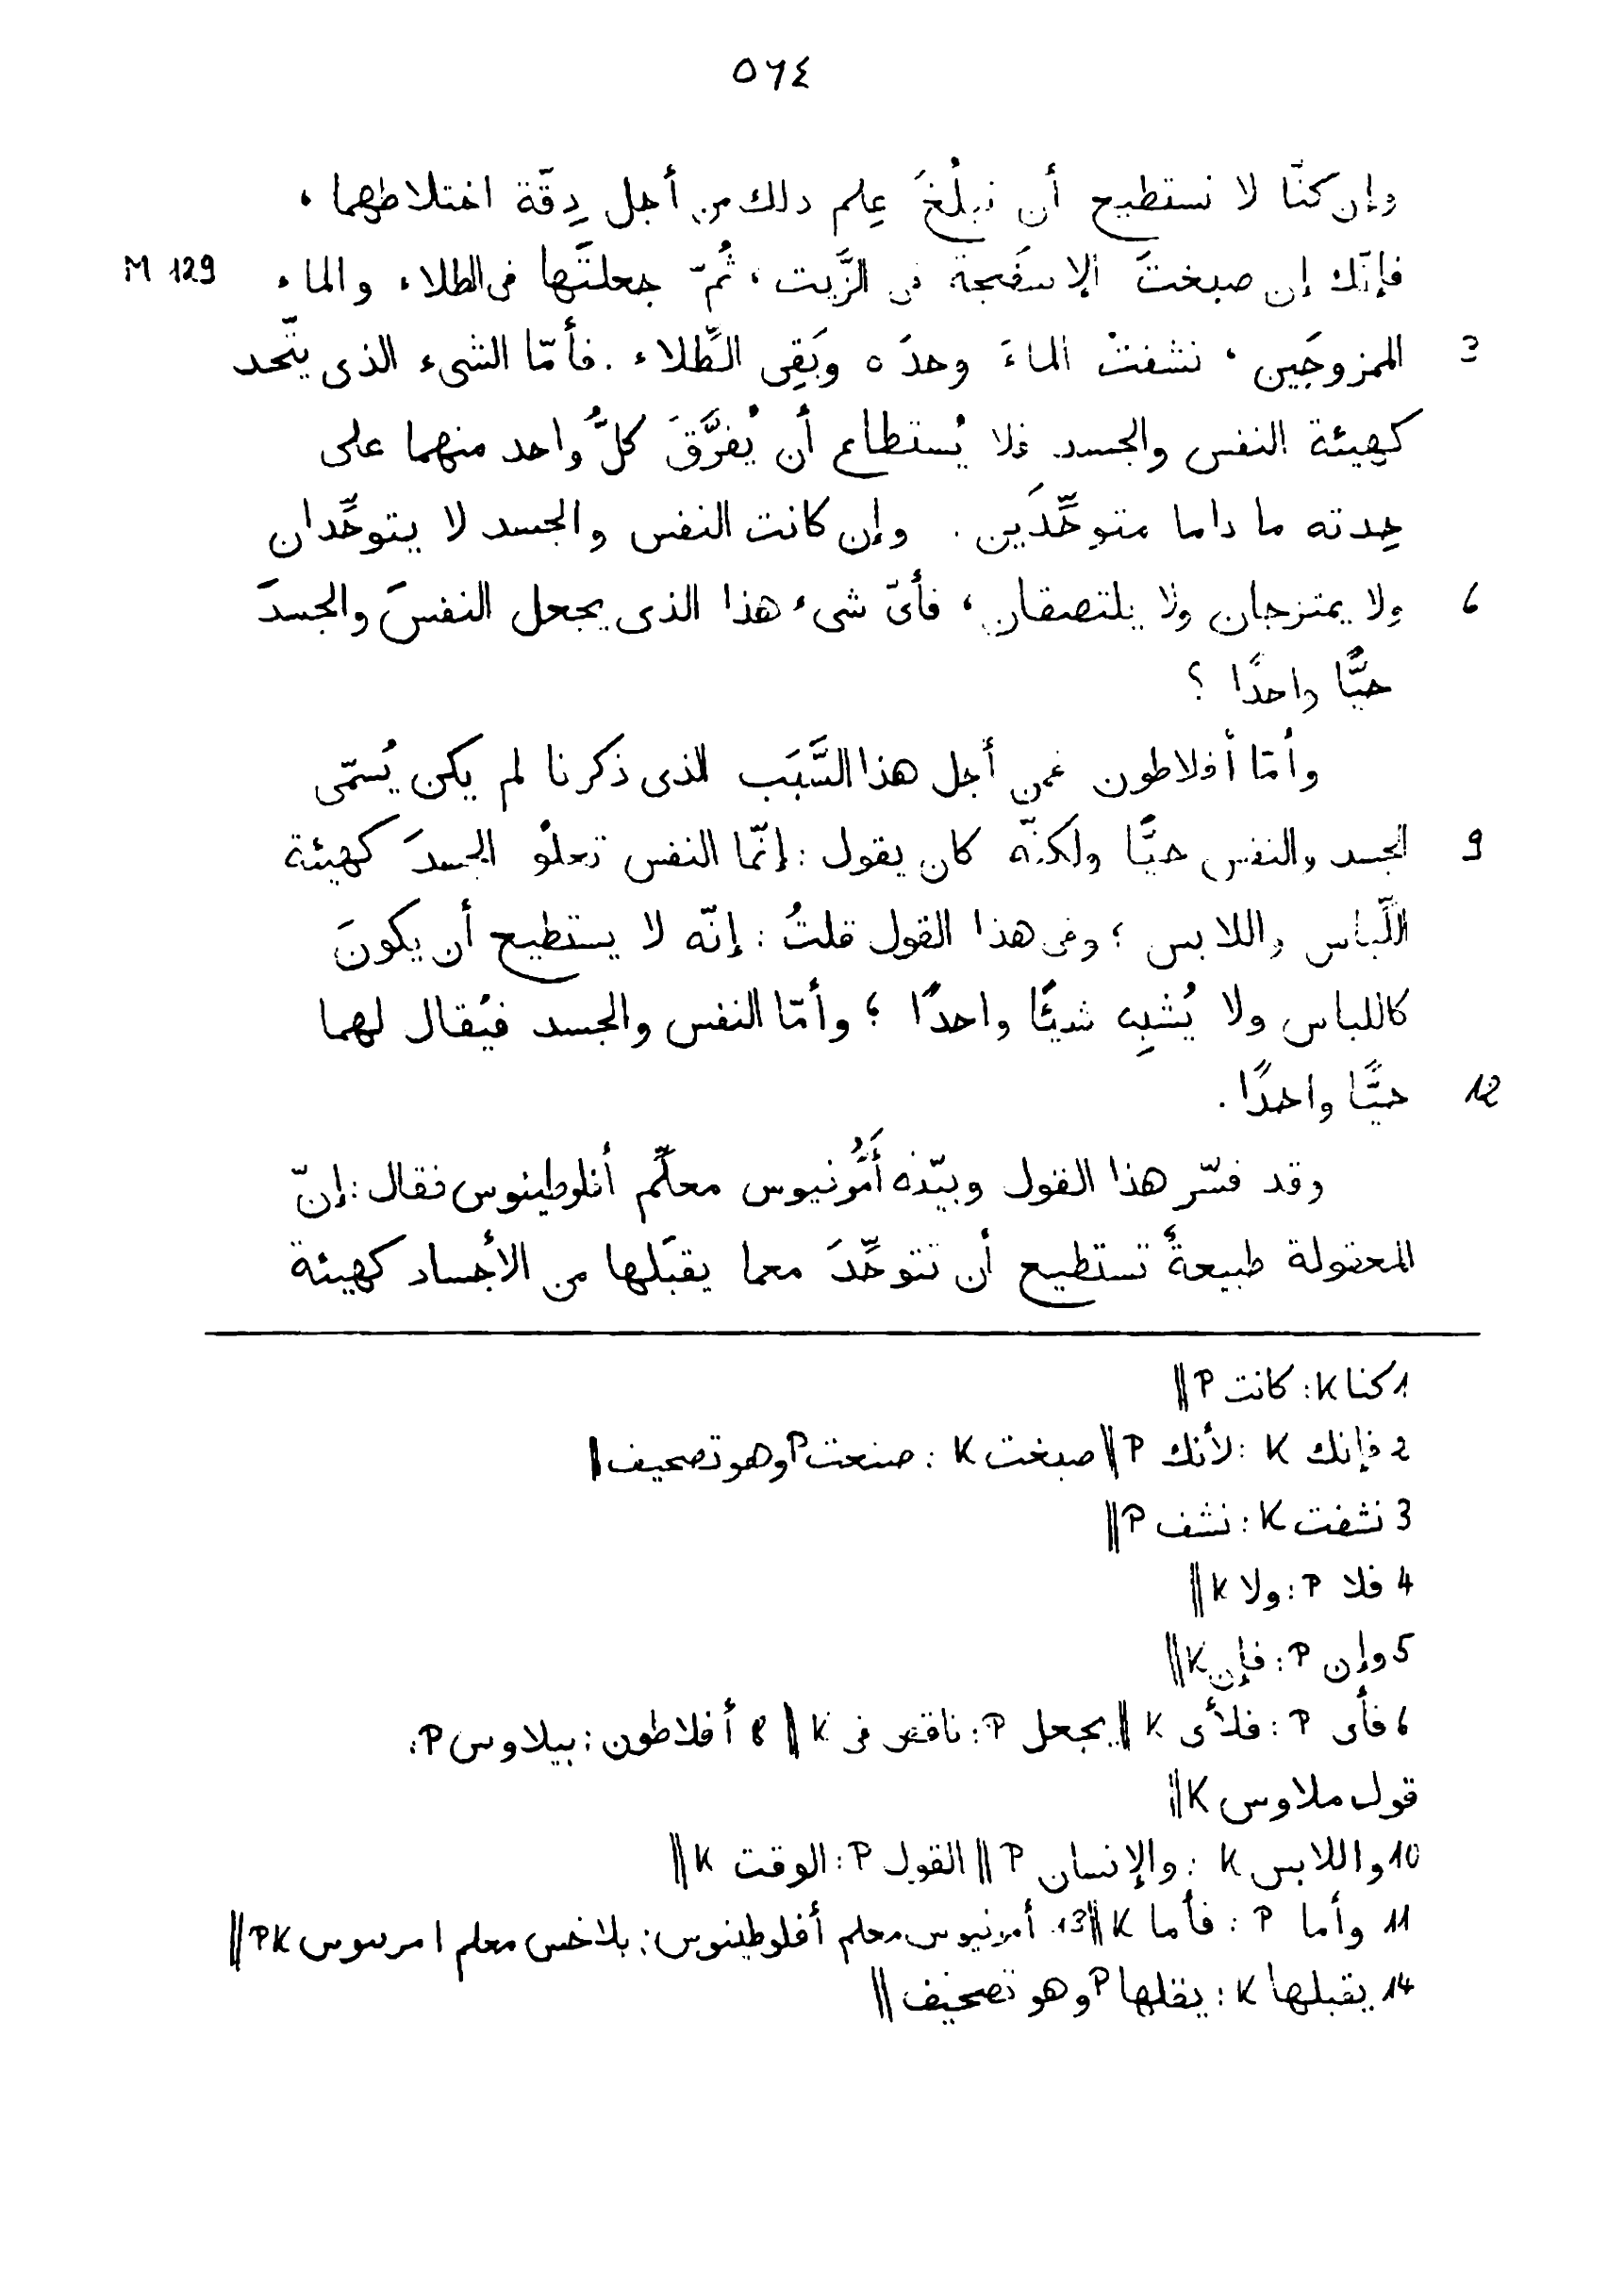 ٥٦٤
وإن كنّا لا نستطيع أن نبلُغَ عِلم ذلك من أجل دِقّة اختلاطهما ،
فإنّك إن صبغتَ الإسفَنجة فى الزَّيت ، ثُمّ جعلتَها فى الطلاء والماء M 129
3 الممزوجَين ، نشفتْ الماءَ وحدَه وبَقِى الطِّلاء . فأمّا الشىء الذى يتّحد
كهيئة النفس والجسد فلا يُستطاع أن يُفرَّقَ كلُّ واحد منهما على
حِدته ما داما متوحِّدَين . وإن كانت النفس والجسد لا يتوحِّدان
6 ولا يمتزجان ولا يلتصقان ، فأىّ شىء هذا الذى يجعل النفسَ والجسدَ
حيًّا واحدًا ؟
وأمّا أفلاطون فمن أجل هذا السَّبَب الذى ذكرنا لم يكن يُسمّى
9 الجسد والنفس حيًّا ولكنّه كان يقول : إنّما النفس تعلو الجسدَ كهيئة
اللِّباس واللابس ؛ وفى هذا القول قلتُ : إنّه لا يستطيع أن يكونَ
كاللباس ولا يُشبِه شيئًا واحدًا ؛ وأمّا النفس والجسد فيُقال لهما
12 حيًّا واحدًا .
وقد فسّر هذا القول وبيّنه أَمُّونيوس معلِّم أفلوطينوس فقال : إنّ
المعقولة طبيعةٌ تستطيع أن تتوحِّدَ معما يقبَلها من الأجساد كهيئة
1 كنا K : كانت P ‖
2 فإنك K : لأنك P ‖ صبغت K : صنعت P وهو تصحيف ‖
3 نشفت K : نشف P ‖
4 فلا P : ولا K ‖
5 وإن P : فإن K ‖
6 فأى P : فلأى K ‖ يجعل P : ناقص فى K ‖ 8 أفلاطون : بيلاوس P :
قول ملاوس K ‖
10 واللابس K : والإنسان P ‖ القول P : الوقت K ‖
11 وأما P : فأما K ‖ 13 أمونيوس معلم أفلوطينوس : بلاخس معلم امرسوس PK ‖
14 يقبلها K : يقلها P وهو تصحيف ‖